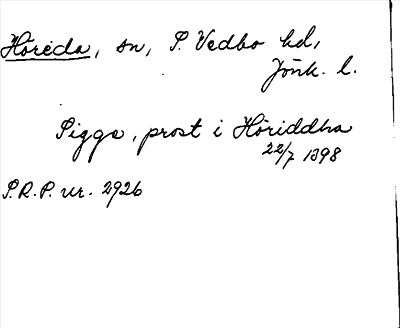 Höreda, sn, S. Vedbo hd,
Jönk. l.
Sigge, prost i Höriddha
22/7 1398
S.R.P. nr. 2926